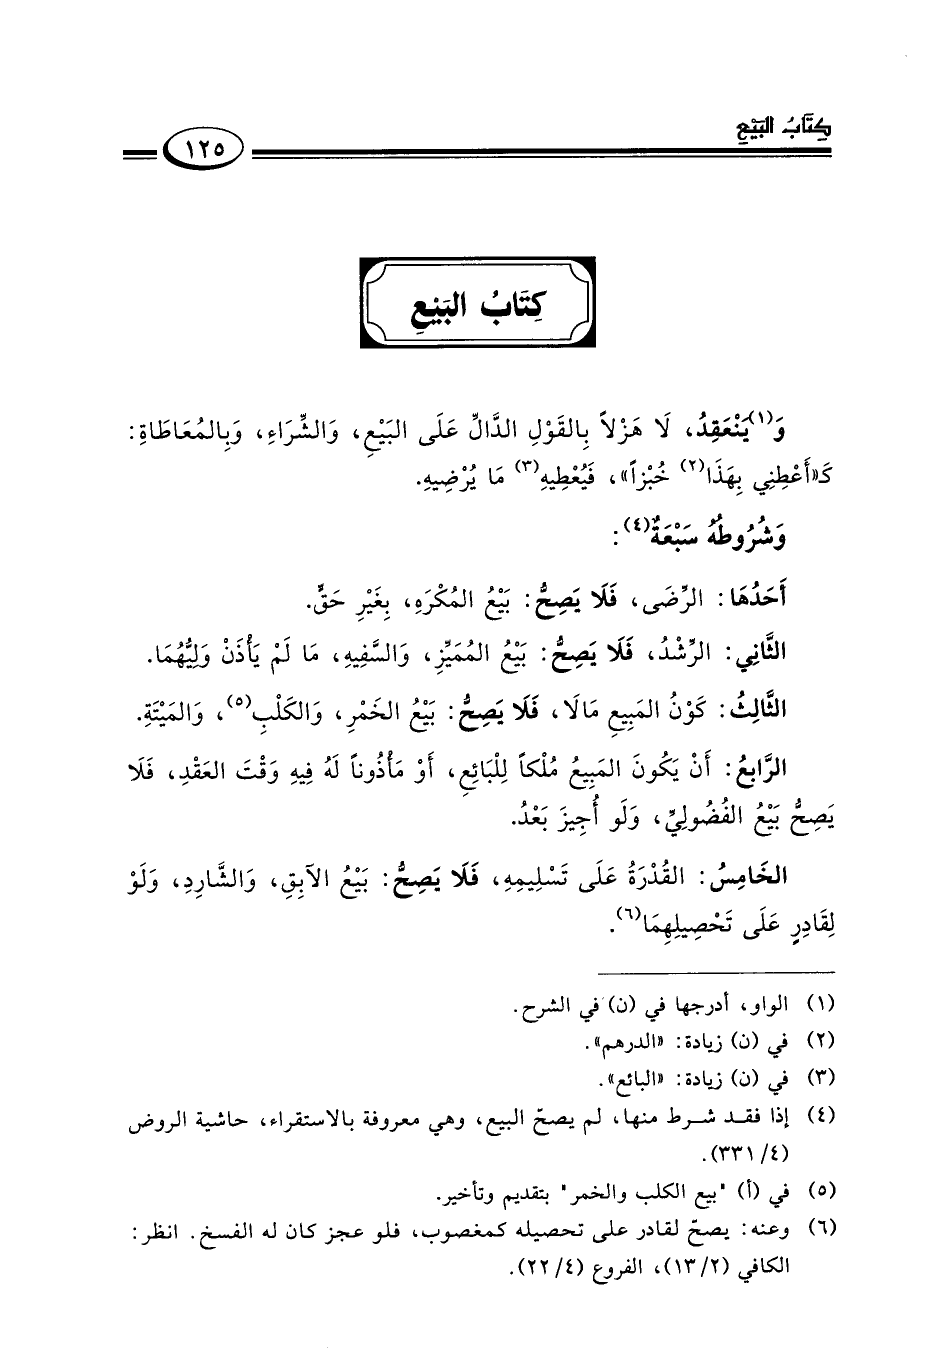 كِتَابُ البَيْعِ
١٢٥
كِتَابُ البَيْعِ
وَ(١)يَنْعَقِدُ، لَا هَزْلاً بِالقَوْلِ الدَّالِّ عَلَى البَيْعِ، وَالشِّرَاءِ، وَبِالمُعَاطَاةِ:
كَـ«أَعْطِنِي بِهَذَا(٢) خُبْزاً»، فَيُعْطِيهِ(٣) مَا يُرْضِيهِ.
وَشُرُوطُهُ سَبْعَةٌ(٤):
أَحَدُهَا: الرِّضَى، فَلَا يَصِحُّ: بَيْعُ المُكْرَهِ، بِغَيْرِ حَقٍّ.
الثَّانِي: الرُّشْدُ، فَلَا يَصِحُّ: بَيْعُ المُمَيِّزِ، وَالسَّفِيهِ، مَا لَمْ يَأْذَنْ وَلِيُّهُمَا.
الثَّالِثُ: كَوْنُ المَبِيعِ مَالَا، فَلَا يَصِحُّ: بَيْعُ الخَمْرِ، وَالكَلْبِ(٥)، وَالمَيْتَةِ.
الرَّابِعُ: أَنْ يَكُونَ المَبِيعُ مُلْكاً لِلْبَائِعِ، أَوْ مَأْذُوناً لَهُ فِيهِ وَقْتَ العَقْدِ، فَلَا
يَصِحُّ بَيْعُ الفُضُولِيِّ، وَلَو أُجِيزَ بَعْدُ.
الخَامِسُ: القُدْرَةُ عَلَى تَسْلِيمِهِ، فَلَا يَصِحُّ: بَيْعُ الآبِقِ، وَالشَّارِدِ، وَلَوْ
لِقَادِرٍ عَلَى تَحْصِيلِهِمَا(٦).
(١) الواو، أدرجها في (ن) في الشرح.
(٢) في (ن) زيادة: «الدرهم».
(٣) في (ن) زيادة: «البائع».
(٤) إذا فقد شرط منها، لم يصحّ البيع، وهي معروفة بالاستقراء، حاشية الروض
(٤/ ٣٣١).
(٥) في (أ) "بيع الكلب والخمر" بتقديم وتأخير.
(٦) وعنه: يصحّ لقادر على تحصيله كمغصوب، فلو عجز كان له الفسخ. انظر:
الكافي (١٣/٢)، الفروع (٤/ ٢٢).